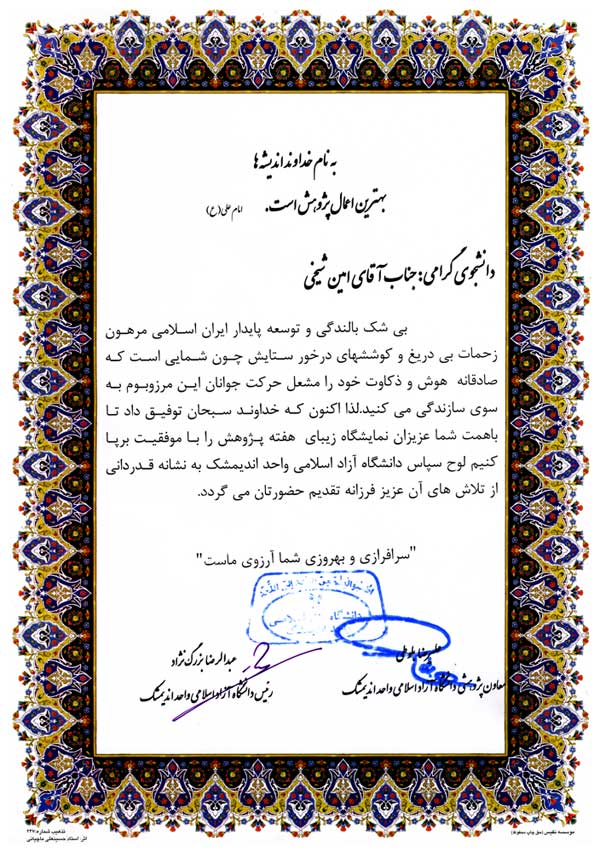 به نام خداوند اندیشه ها
بهترین اعمال پژوهش است. امام علی(ع)
دانشجوی گرامی: جناب آقای امین شیخی
بی شک بالندگی و توسعه پایدار ایران اسلامی مرهون
زحمات بی دریغ و کوششهای درخور ستایش چون شمایی است که
صادقانه هوش و ذکاوت خود را مشعل حرکت جوانان این مرزوبوم به
سوی سازندگی می کنید.لذا اکنون که خداوند سبحان توفیق داد تا
باهمت شما عزیزان نمایشگاه زیبای هفته پژوهش را با موفقیت برپا
کنیم لوح سپاس دانشگاه آزاد اسلامی واحد اندیمشک به نشانه قدردانی
از تلاش های آن عزیز فرزانه تقدیم حضورتان می گردد.
"سرافرازی و بهروزی شما آرزوی ماست"
دانشگاه آزاد اسلامی
علیرضا بلوطی
معاون پژوهشی دانشگاه آزاد اسلامی واحد اندیمشک
عبدالرضا بزرگ نژاد
رئیس دانشگاه آزاد اسلامی واحد اندیمشک
موسسه نفیس (حق چاپ محفوظ)
تذهیب شماره: ۲۴۷
اثر: استاد حسینعلی ماچیانی